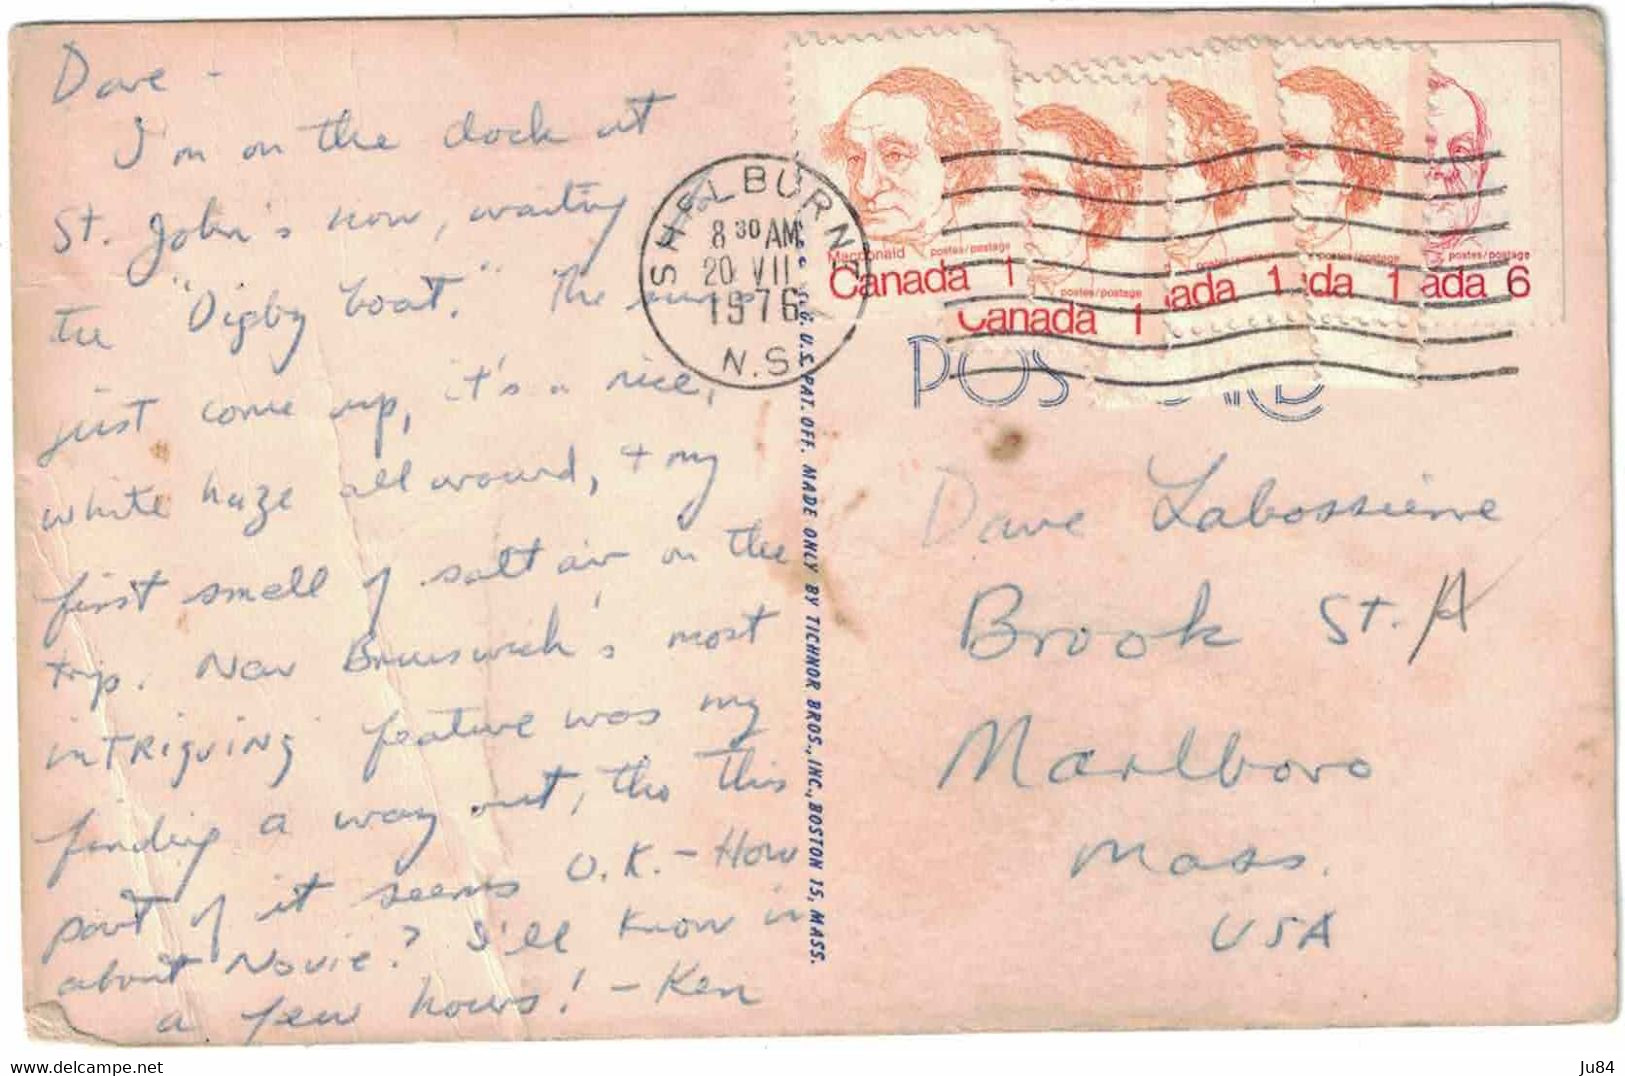 Dave -
I'm on the dock at
St. John's now, waiting for
the "Digby boat." The sun's
just come up, it's a nice,
white haze all around, + my
first smell of salt air on the
trip. New Brunswick's most
intriguing feature was my
finding a way out, tho this
part of it seems O.K. - How
about Novie? I'll know in
a few hours! - Ken
SHELBURNE
8 30 AM
20 VII
1976
N.S.
Macdonald postes/postage
Canada 1
postes/postage
Canada 1
postes/postage
ada 1
postes/postage
da 1
postes/postage
ada 6
POST CARD
REG. U.S. PAT. OFF. MADE ONLY BY TICHNOR BROS., INC., BOSTON 15, MASS.
Dave Labossiere
Brook St.
Marlboro
Mass.
USA
Ju84
www.delcampe.net